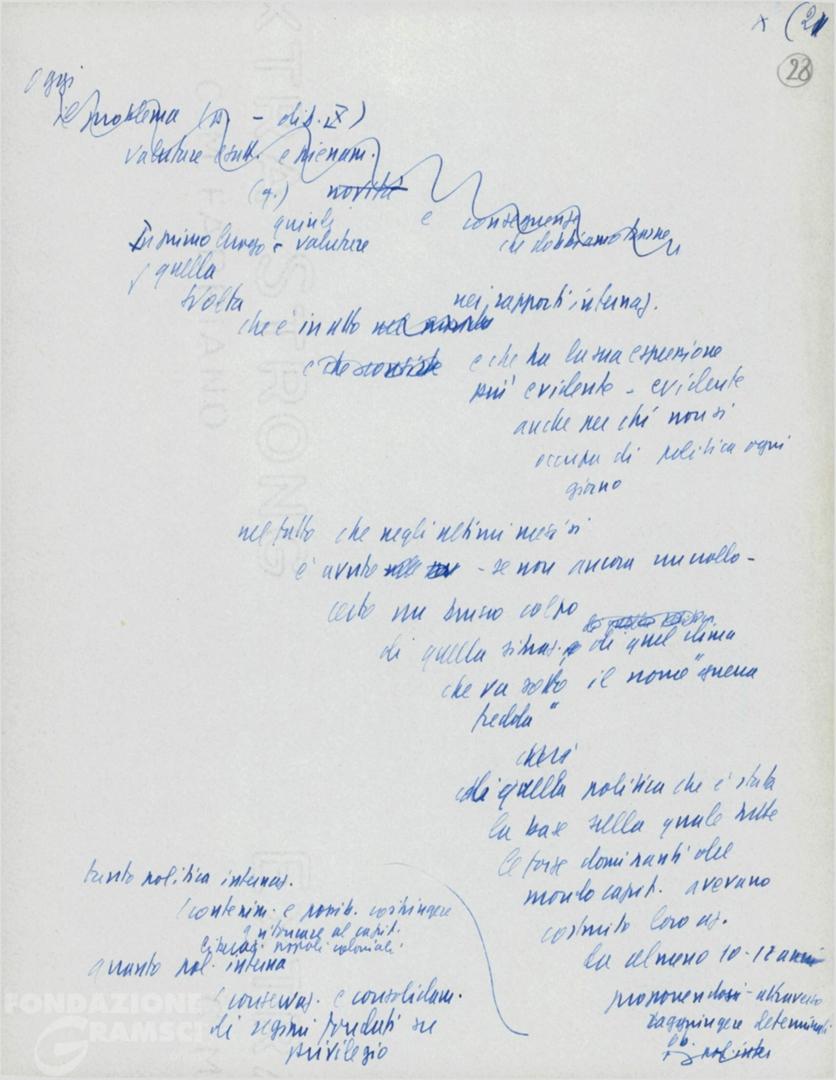 x (21
28
oggi
il problema ( - dis. X)
valutare esatt. e pienam.
(q.) novità e conseguenze
quindi che dobbiamo trarne
In primo luogo - valutare
quella
svolta
nei rapporti internaz.
che è in atto nel mondo
e che consiste e che ha la sua espressione
più evidente - evidente
anche per chi non si
occupa di politica ogni
giorno
nel fatto che negli ultimi mesi si
è avuto - se non ancora un crollo -
certo un duro colpo
di quella situaz. e di quel clima
che va sotto il nome "guerra
fredda"
cioè
di quella politica che è stata
la base sulla quale tutte
le forze dominanti del
mondo capit. avevano
costruito loro az.
da almeno 10-12 anni
proponendosi - attraverso
raggiungere determinati
ob.
tanto politica internaz.
(contenim. e possib. costringere
a ritornare al capit.
popoli coloniali.
quanto pol. interna
(conservaz. e consolidam.
di regimi fondati su
privilegio
FONDAZIONE
GRAMSCI